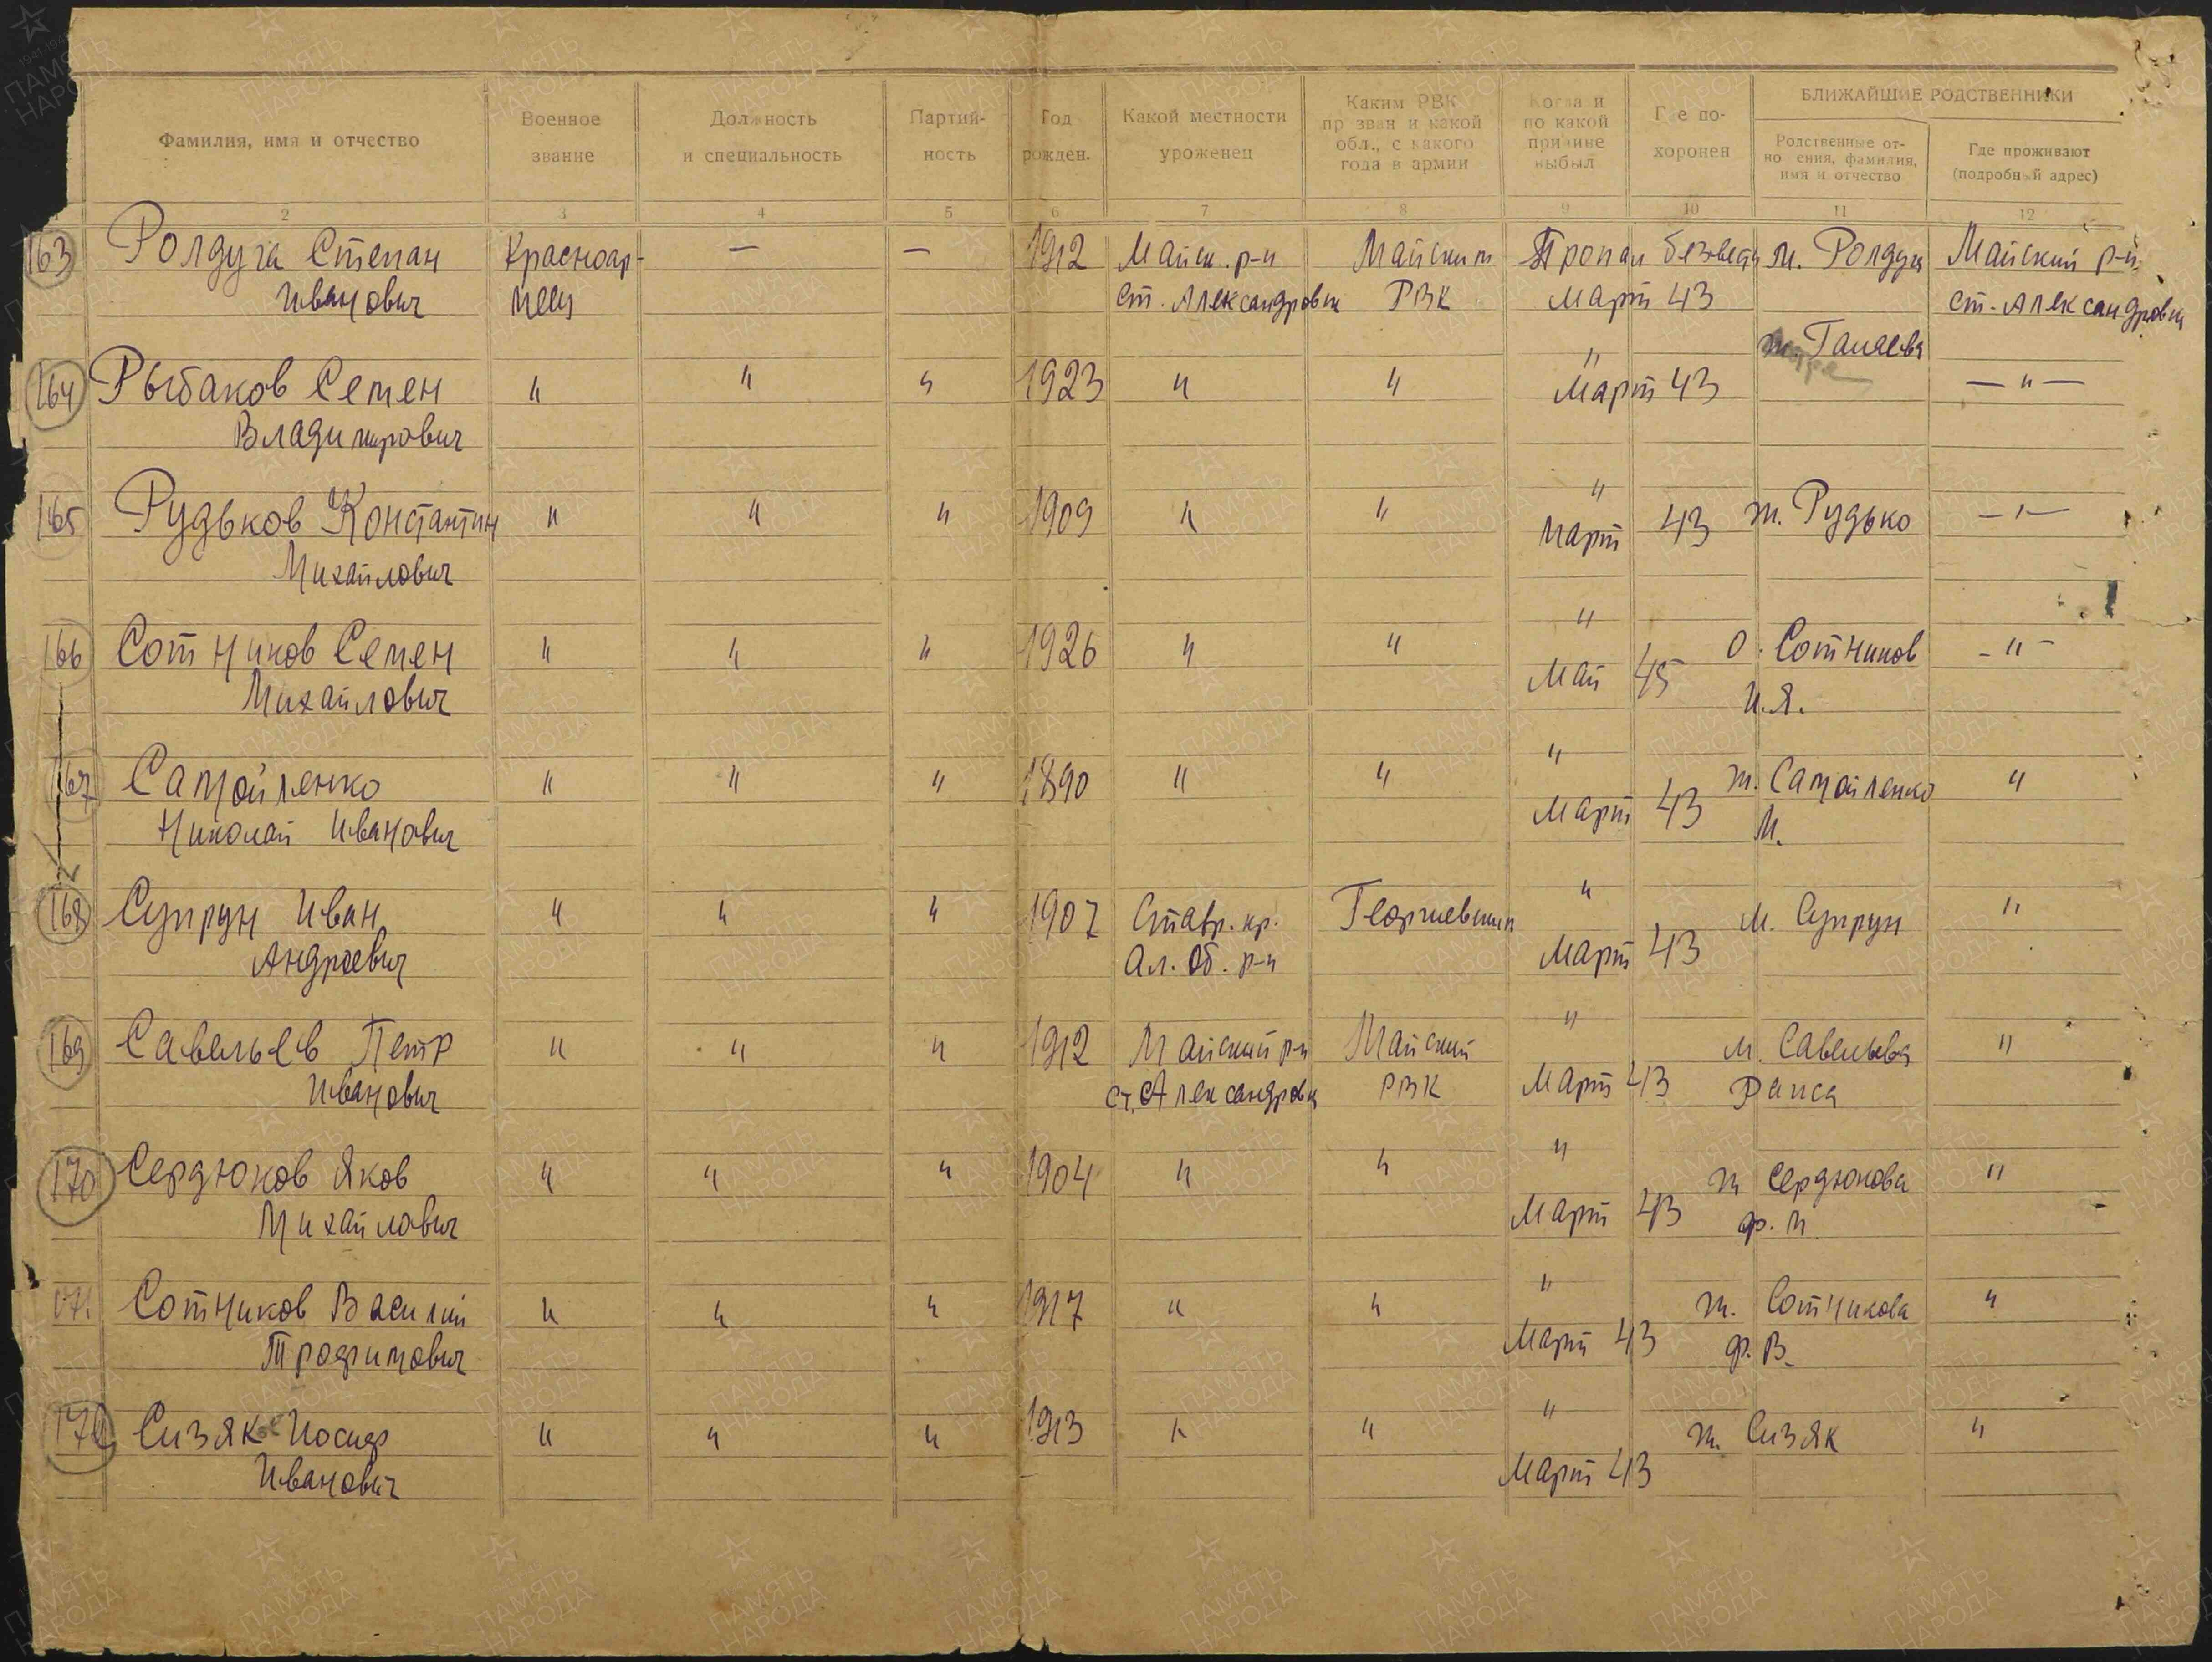 Фамилия, имя и отчество
Военное
звание
Должность
и специальность
Партий-
ность
Год
рожден.
Какой местности
уроженец
Каким РВК
призван и какой
обл., с какого
года в армии
Когда и
по какой
причине
выбыл
Где по-
хоронен
БЛИЖАЙШИЕ РОДСТВЕННИКИ
Родственные от-
ношения, фамилия,
имя и отчество
Где проживают
(подробный адрес)
2 3 4 5 6 7 8 9 10 11 12
163 Ролдуга Степан Красноар- — — 1912 Майск. р-н Майским Пропал безвести м. Ролдуга Майский р-н
Иванович меец ст. Александровка РВК Март 43 ст. Александровка
Гамаева
164 Рыбаков Семен " " " 1923 " " " Март 43 — " —
Владимирович
165 Рудьков Константин " " " 1909 " " " Март 43 ж. Рудько — " —
Михайлович
166 Сотников Семен " " " 1926 " " " О. Сотников - " -
Михайлович Май 45 И.Я.
167 Самойленко " " " 1890 " " " ж. Самойленко "
Николай Иванович Март 43 М.
168 Супрун Иван " " " 1907 Ставр. кр. Георгиевским " м. Супрун "
Андреевич Ал. Об. р-н Март 43
169 Савельев Петр " " " 1912 Майский р-н Майский " м. Савельева "
Иванович ст. Александровка РВК Март 43 Раиса
170 Сердюков Яков " " " 1904 " " " ж Сердюкова "
Михайлович Март 43 Ф. М.
171. Сотников Василий " " " 1917 " " " ж. Сотникова "
Трофимович Март 43 Ф. В.
172 Сизяк Иосиф " " " 1913 " " " ж. Сизяк "
Иванович Март 43
ПАМЯТЬ
НАРОДА